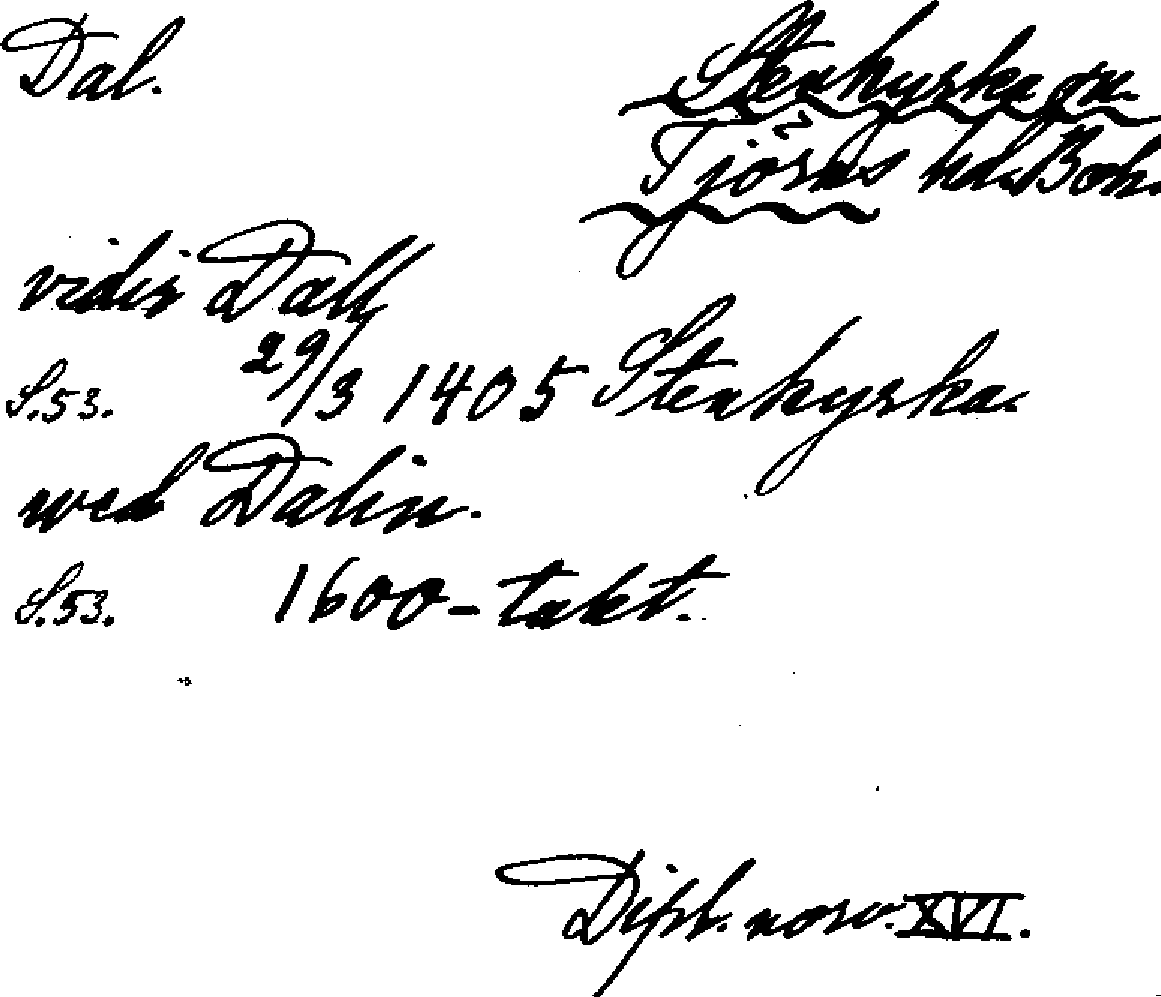 Dal.
Stenkyrka sn.
Tjörns hd. Boh.
vidir Dall
29/3 1405 Stenkyrka.
S.53.
wed Dalin.
S.53. 1600-takt.
Dipl. norv. XVI.